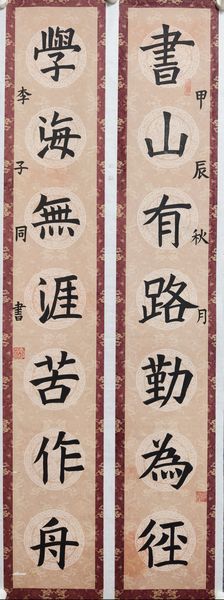 書山有路勤為徑
甲辰秋月
學海無涯苦作舟
李子同書